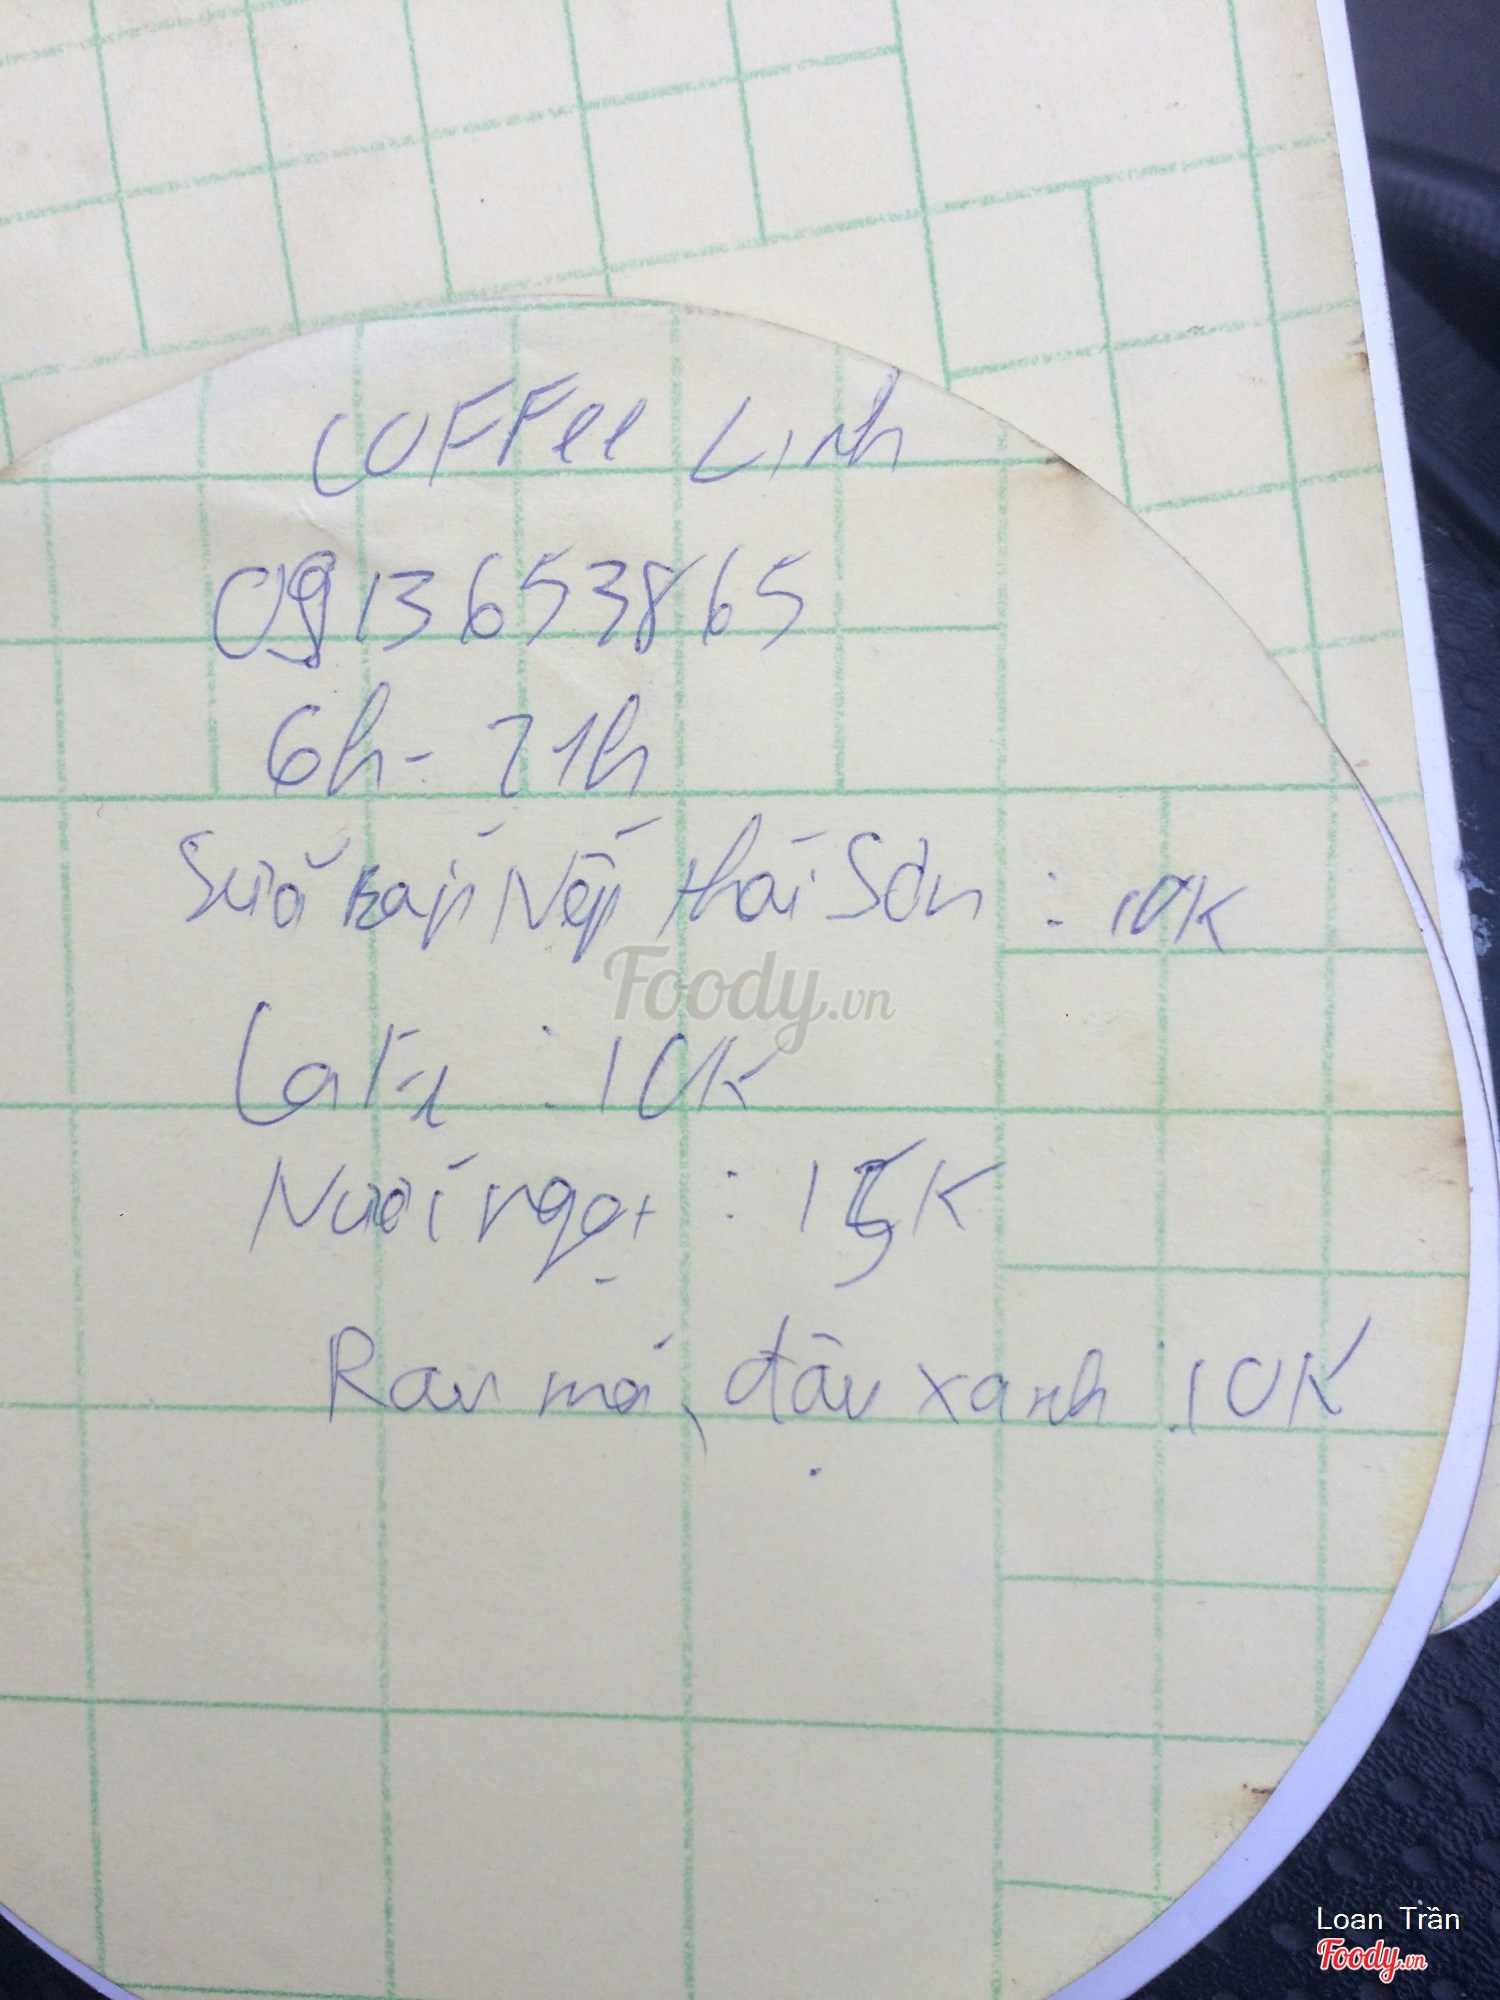 COFFee Linh
0913653865
6h - 21h
Sữa Bắp Nếp thái Sơn : 10K
Foody.vn
CaFe : 10K
Nước ngọt : 15K
Rau má, đậu xanh : 10K
Loan Trần
Foody.vn